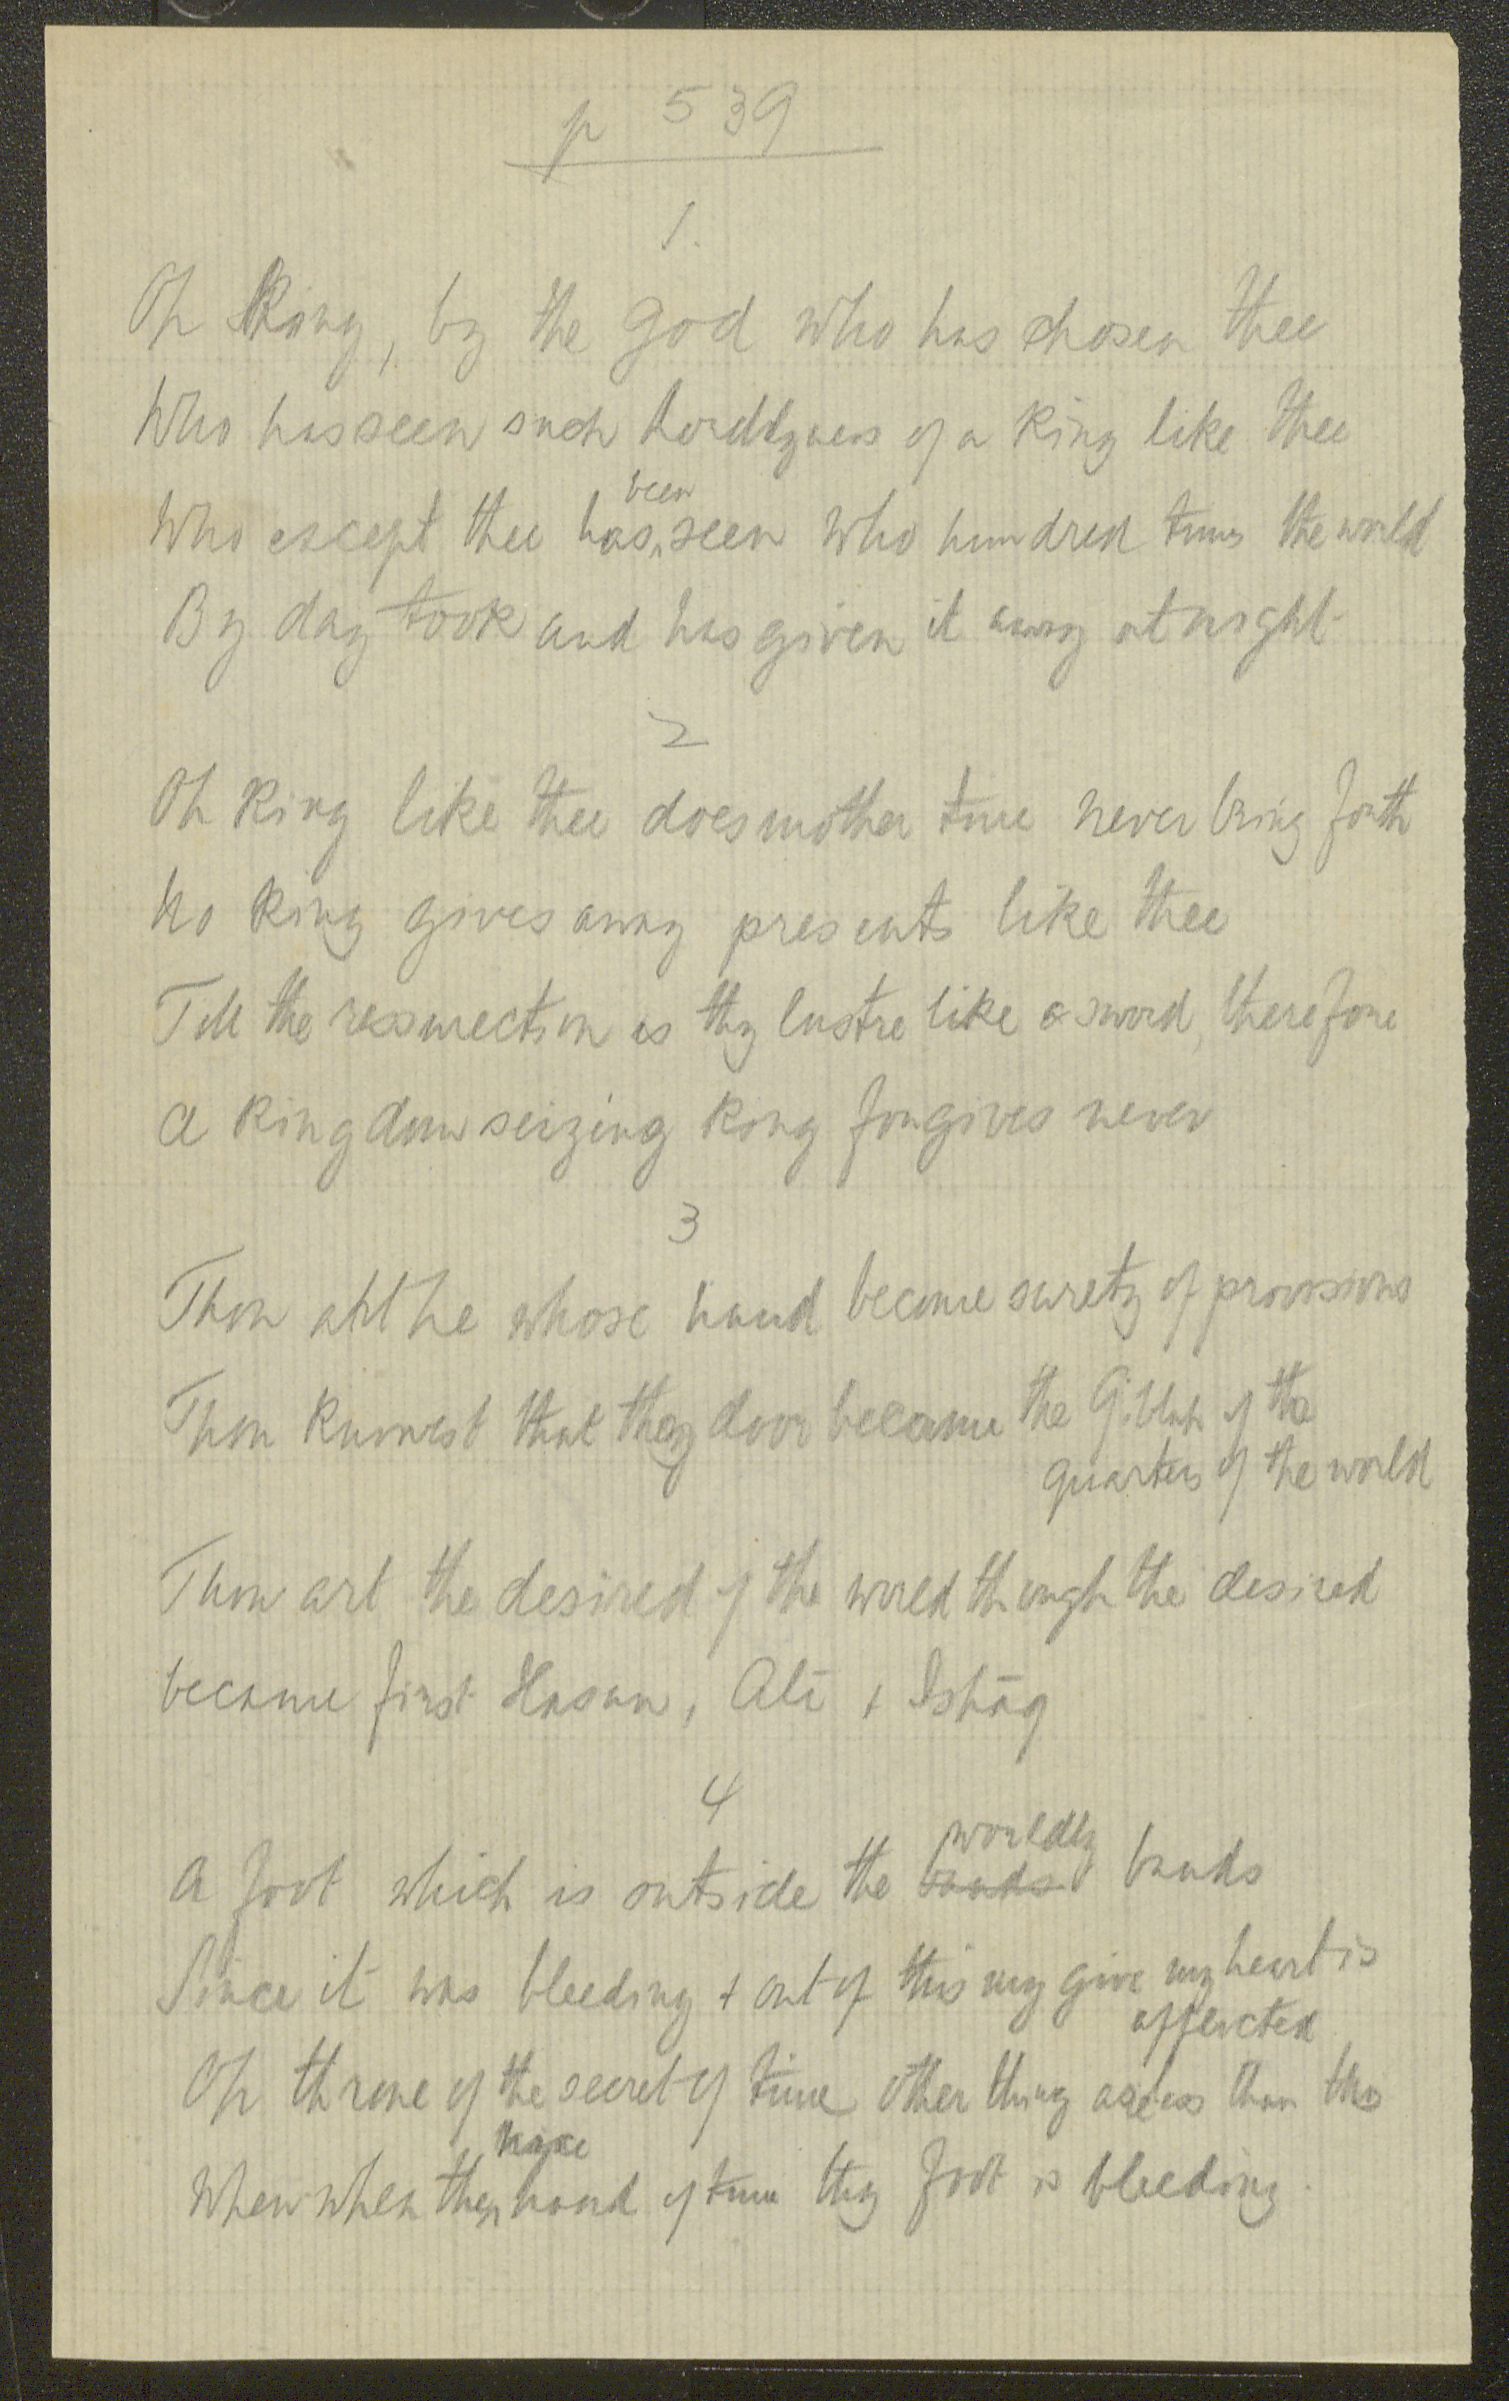 p 539
1.
Oh King, by the God who has chosen thee
Who has seen such Lordlyness of a King like thee
Who except thee has been seen who hundred times the world
By day took and has given it away at night
2
Oh King like thee does mother time never bring forth
No King gives away presents like thee
Till the ressurection is thy lustre like a sword, therefore
A Kingdom seizing King forgives never
3
Thou art he whose hand became surety of provisions
Thou knowest that they door became the Qiblah of the
quarters of the world
Thou art the desired of the world though the desired
became first Hasan, Alī + Ishāq
4
A foot which is outside the worldly bands
Since it was bleeding + out of this my give my heart is
afflicted
Oh throne of the secret of time other thing was than this
When when they hand of time thy foot is bleeding.